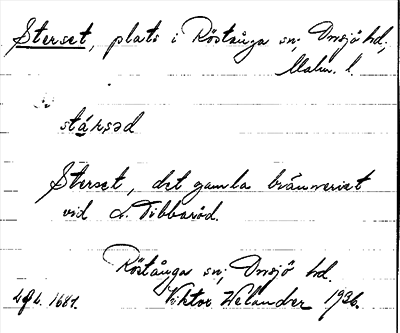 Sterset, plats i Röstånga sn; Onsjö hd,
Malm. l.
stä́rsəd
Sterset, det gamla bränneriet
vid L. Tibbaröd.
Röstånga sn; Onsjö hd.
Viktor Welander 1926.